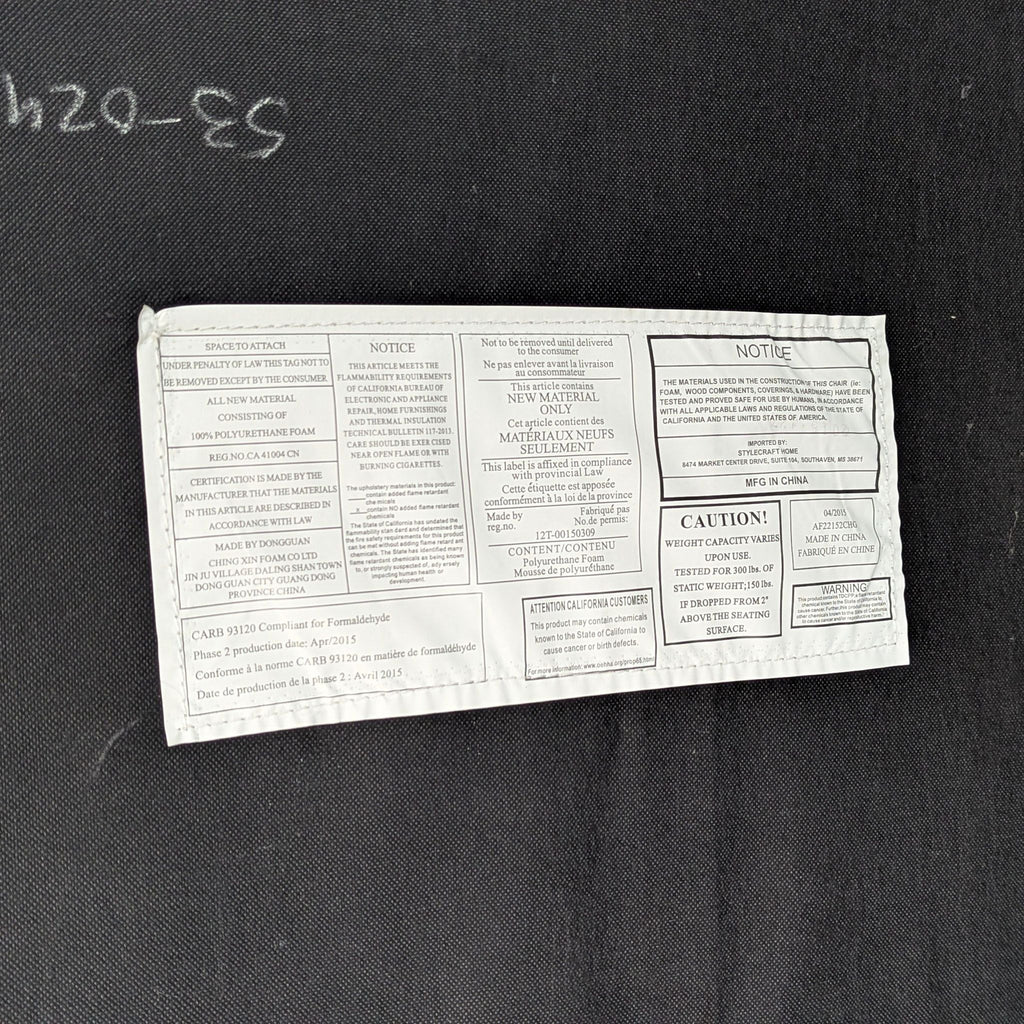 53-024
SPACE TO ATTACH
UNDER PENALTY OF LAW THIS TAG NOT TO
BE REMOVED EXCEPT BY THE CONSUMER
ALL NEW MATERIAL
CONSISTING OF
100% POLYURETHANE FOAM
REG.NO.CA 41004 CN
CERTIFICATION IS MADE BY THE
MANUFACTURER THAT THE MATERIALS
IN THIS ARTICLE ARE DESCRIBED IN
ACCORDANCE WITH LAW
MADE BY DONGGUAN
CHING XIN FOAM CO LTD
JIN JU VILLAGE DALING SHAN TOWN
DONG GUAN CITY GUANG DONG
PROVINCE CHINA
NOTICE
THIS ARTICLE MEETS THE
FLAMMABILITY REQUIREMENTS
OF CALIFORNIA BUREAU OF
ELECTRONIC AND APPLIANCE
REPAIR, HOME FURNISHINGS
AND THERMAL INSULATION
TECHNICAL BULLETIN 117-2013.
CARE SHOULD BE EXER CISED
NEAR OPEN FLAME OR WITH
BURNING CIGARETTES.
The upholstery materials in this product:
____contain added flame retardant
che micals
__x__contain NO added flame retardant
chemicals
The State of California has undated the
flammability stan dard and determined that
the fire safety requirements for this product
can be met without adding flame retard ant
chemicals. The State has identified many
flame retardant chemicals as being known
to, or strongly suspected of, adv ersely
impacting human health or
development.
Not to be removed until delivered
to the consumer
Ne pas enlever avant la livraison
au consommateur
This article contains
NEW MATERIAL
ONLY
Cet article contient des
MATÉRIAUX NEUFS
SEULEMENT
This label is affixed in compliance
with provincial Law
Cette étiquette est apposée
conformément à la loi de la province
Made by Fabriqué pas
reg.no. No.de permis:
12T-00150309
CONTENT/CONTENU
Polyurethane Foam
Mousse de polyuréthane
NOTICE
THE MATERIALS USED IN THE CONSTRUCTION OF THIS CHAIR (ie:
FOAM, WOOD COMPONENTS, COVERINGS, & HARDWARE) HAVE BEEN
TESTED AND PROVED SAFE FOR USE BY HUMANS, IN ACCORDANCE
WITH ALL APPLICABLE LAWS AND REGULATIONS OF THE STATE OF
CALIFORNIA AND THE UNITED STATES OF AMERICA.
IMPORTED BY:
STYLECRAFT HOME
8474 MARKET CENTER DRIVE, SUITE 104, SOUTHAVEN, MS 38671
MFG IN CHINA
CAUTION!
WEIGHT CAPACITY VARIES
UPON USE.
TESTED FOR 300 lbs. OF
STATIC WEIGHT;150 lbs.
IF DROPPED FROM 2"
ABOVE THE SEATING
SURFACE.
04/2015
AF22152CHG
MADE IN CHINA
FABRIQUÉ EN CHINE
WARNING
This product contains TDCPP, a flame retardant
chemical known to the State of California to
cause cancer. Further, this product may contain
other chemicals known to the State of California
to cause cancer and/or reproductive harm.
CARB 93120 Compliant for Formaldehyde
Phase 2 production date: Apr/2015
Conforme à la norme CARB 93120 en matière de formaldéhyde
Date de production de la phase 2 : Avril 2015
ATTENTION CALIFORNIA CUSTOMERS
This product may contain chemicals
known to the State of California to
cause cancer or birth defects.
For more information: www.oehha.org/prop65.html